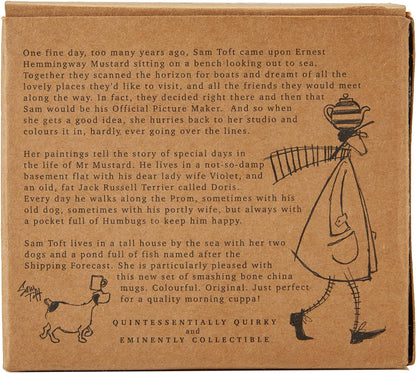 One fine day, too many years ago, Sam Toft came upon Ernest
Hemmingway Mustard sitting on a bench looking out to sea.
Together they scanned the horizon for boats and dreamt of all the
lovely places they'd like to visit, and all the friends they would meet
along the way. In fact, they decided right there and then that
Sam would be his Official Picture Maker. And so when
she gets a good idea, she hurries back to her studio and
colours it in, hardly ever going over the lines.
Her paintings tell the story of special days in
the life of Mr Mustard. He lives in a not-so-damp
basement flat with his dear lady wife Violet, and
an old, fat Jack Russell Terrier called Doris.
Every day he walks along the Prom, sometimes with his
old dog, sometimes with his portly wife, but always with
a pocket full of Humbugs to keep him happy.
Sam Toft lives in a tall house by the sea with her two
dogs and a pond full of fish named after the
Shipping Forecast. She is particularly pleased with
this new set of smashing bone china
mugs. Colourful. Original. Just perfect
for a quality morning cuppa!
Sam
Toft
QUINTESSENTIALLY QUIRKY
and
EMINENTLY COLLECTIBLE